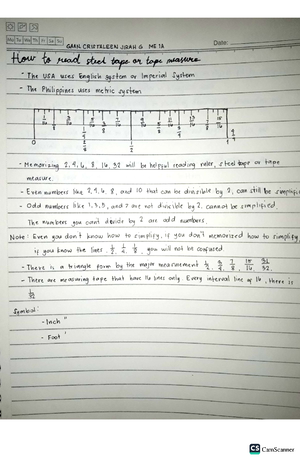 Mo Tu We Th Fr Sa Su
GAAN CRISTALEEN JIRAH G ME 1A
Date:
How to read steel tape or tape measure
- The USA uses English system or Imperial System
- The Philippines uses metric system
0 1/2 1
- Memorizing 2, 4, 6, 8, 16, 32 will be helpful reading ruler, steel tape or tape
measure.
- Even numbers like 2, 4, 6, 8, and 10 that can be divisible by 2, can still be simplifi
- Odd numbers like 1, 3, 5, and 7 are not divisible by 2, cannot be simplified.
The numbers you can't divide by 2 are odd numbers.
Note: Even you don't know how to simplify, if you don't memorized how to simplify
if you know the lines, 1/2, 1/4, 1/8, you will not be confused
- There is a triangle form by the major measurement 1/2, 3/4, 7/8, 15/16, 31/32.
- There are measuring tape that have 16 lines only. Every interval line of 16, there is
1/32
Symbol:
- Inch "
- Foot '
CS CamScanner